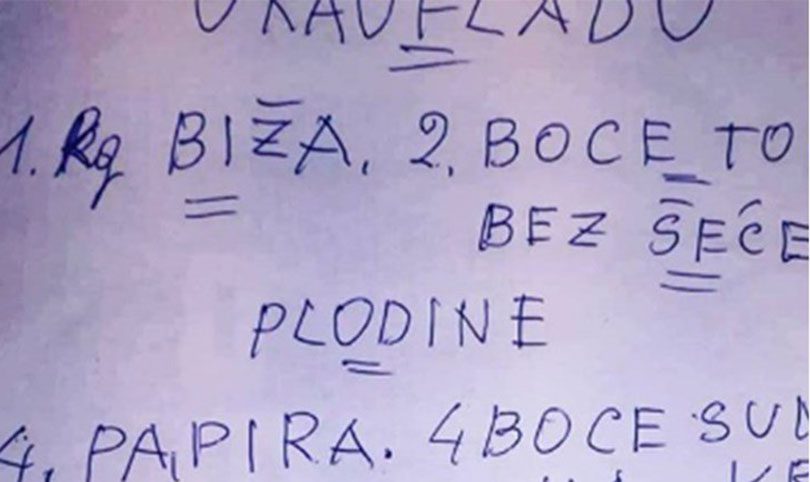 U KAUFLADU
1. Kg BIŽA. 2. BOCE TO
BEZ ŠEĆE
PLODINE
4. PAPIRA. 4 BOCE SUD